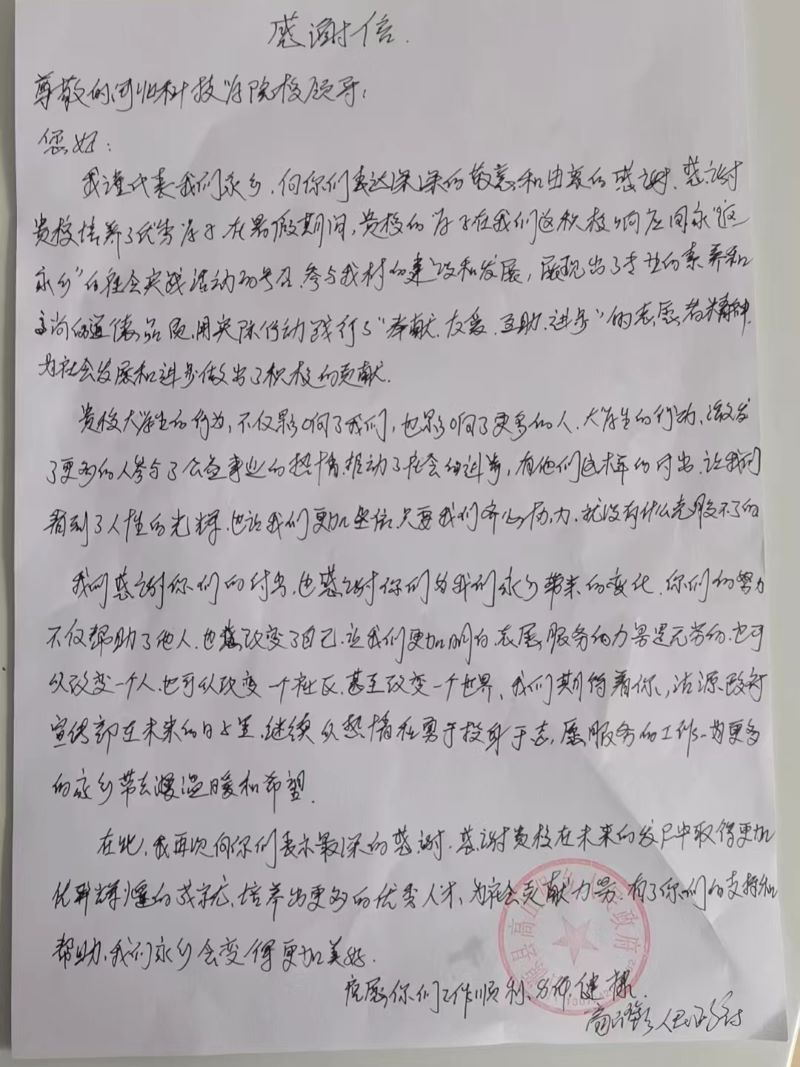 感谢信.
尊敬的河北科技学院校领导:
您好:
我谨代表我们家乡,向你们表达深深的敬意和由衷的感谢.感谢
贵校培养了优秀学子.在暑假期间,贵校的学子在我们这积极响应回家"返
家乡"的社会实践活动的号召.参与我村的建设和发展,展现出了专业的素养和
高尚的道德品质,用实际行动践行了"奉献.友爱.互助.进步"的志愿者精神.
为社会发展和进步做出了积极的贡献.
贵校大学生的行为,不仅影响了我们,也影响了更多的人.大学生的行动,激发
了更多的人参与了公益事业的热情.推动了社会的进步,有他们这样的付出,让我们
看到了人性的光辉.也让我们更加坚信.只要我们齐心协力,就没有什么克服不了的
我们感谢你们的付出,也感谢你们为我们家乡带来的变化.你们的努力
不仅帮助了他人.也改变了自己.让我们更加明白.志愿服务的力量是无穷的.也可
以改变一个人.也可以改变一个社区.甚至改变一个世界.我们期待着你,沽源政府
宣传部在未来的日子里.继续以热情和勇于投身于志愿服务的工作.为更多
的家乡带去温暖和希望.
在此,我再次向你们表示最深的感谢.感谢贵校在未来的发展中取得更加
优异辉煌的成就.培养出更多的优秀人才,为社会贡献力量.有了你们的支持和
帮助,我们家乡会变得更加美好.
祝愿你们工作顺利、身体健康.
人民政府